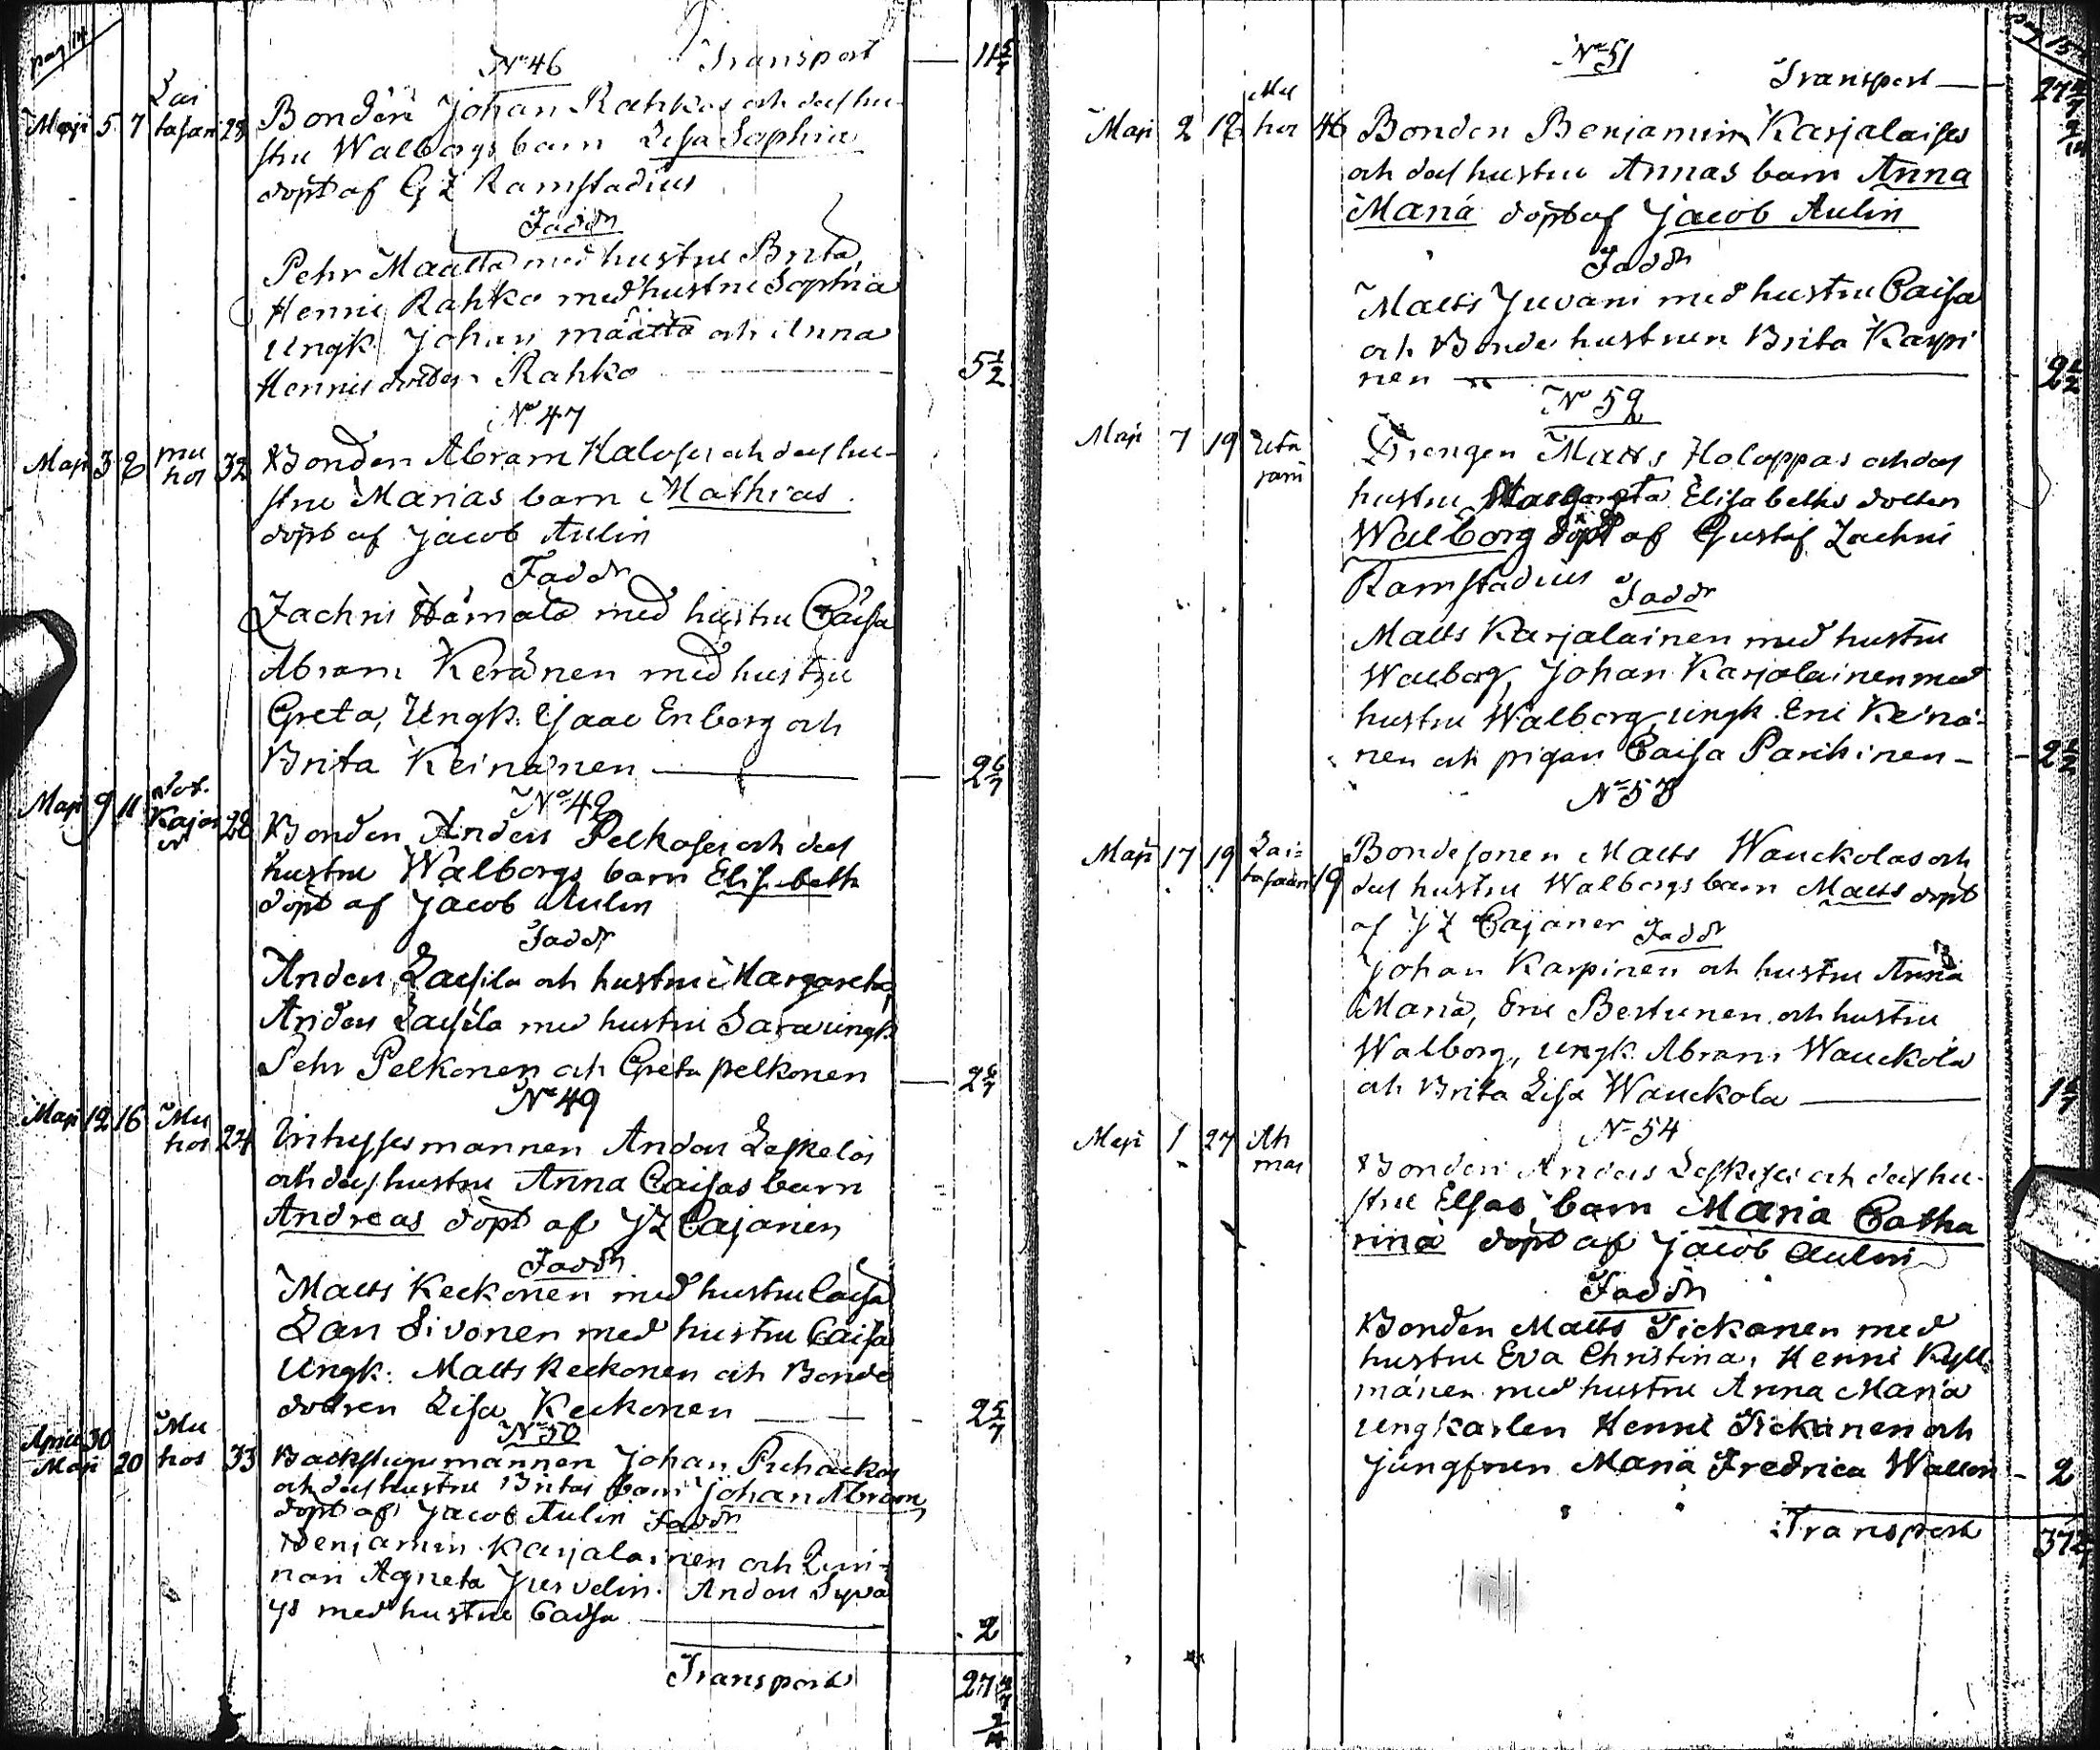 pag 14
No 46
Transport 11 5/7
Maji 5 7 Lai
tasari 28 Bonden Johan Rahkos och dess hu-
stru Walborgs barn Lisa Sophia
döpt af G Z Ramstadius
Faddr
Pehr Määttä med hustru Brita,
Henric Rahko med hustru Sophia
Ungk. Johan Määttä och Anna
Henricsdotter Rahko 5 1/2
No 47
Maji 3 8 Mu
hos 32 Bonden Abram Kaloses och dess hu-
stru Marias barn Mathias
döpt af Jacob Aulin
Faddr
Zachris Hämälä med hustru Caisa
Abram Keränen med hustru
Greta, Ungk. Isaac Enberg och
Brita Keinänen 2 6/7
No 48
Maji 9 11
Kaja 28 Bonden Anders Pelkoses och dess
hustru Walborgs barn Elisabeth
döpt af Jacob Aulin
Faddr
Anders Laesila och hustru Margareta,
Anders Laesila med hustru Sara ungk.
Pehr Pelkonen och Greta Pelkonen 2 6/7
No 49
Maji 12 16 Mu
hos 24 Inhysses mannen Anders Leskeläs
och dess hustru Anna Caisas barn
Andreas döpt af J Z Cajanien
Faddr
Matts Keckonen med hustru Caisa
Lars Sivonen med hustru Caisa
Ungk: Matts Keckonen och Bonde
dottren Lisa Keckonen 2 5/7
No 50
April 30
Maji 20 Mu
hos 33 Backstugumannen Johan Puhackas
och dess hustru Britas barn Johan Abram
döpt af Jacob Aulin Faddr
Benjamin Karjalainen och
Agneta Anders Syvä
med hustru Caisa 2
Transport 27
pag 15
No 51
Transport 27
Maji 2 18 Mu
hos 46 Bonden Benjamin Karjalaises
och dess hustru Annas barn Anna
Maria döpt af Jacob Aulin
Faddr
Matts Juvani med hustru Caisa
och Bonde hustrun Brita Karpi
nen 2 1/2
No 52
Maji 7 19 Uta
jarvi Drengen Matts Holappas och dess
hustru Margareta Elisabeths dotter
Walborg döpt af Gustaf Zachris
Ramstadius Faddr
Matts Karjalainen med hustru
Walborg, Johan Karjalainen med
hustru Walborg, ungk. Eric Keinä-
nen och pigan Caisa Parikinen 2 1/2
No 53
Maji 17 19 Lai-
tasaari 19 Bondesonen Matts Wauckolas och
dess hustru Walborgs barn Matts döpt
af J Z Cajaner Faddr
Johan Karpinen och hustru Anna
Maria, Eric Bertunen och hustru
Walborg, ungk. Abram Wauckola
och Brita Lisa Wauckola
No 54
Maji 1 27 Ah
mas Bonden Anders Leskises och dess hu-
stru Elsas barn Maria Catha
rina döpt af Jacob Aulin
Faddr
Bonden Matts Tickanen med
hustru Eva Christina, Henric Kyll-
mänen med hustru Anna Maria
Ungkarlen Henric Tickanen och
jungfrun Maria Fredrica Wallen 2
Transport 37